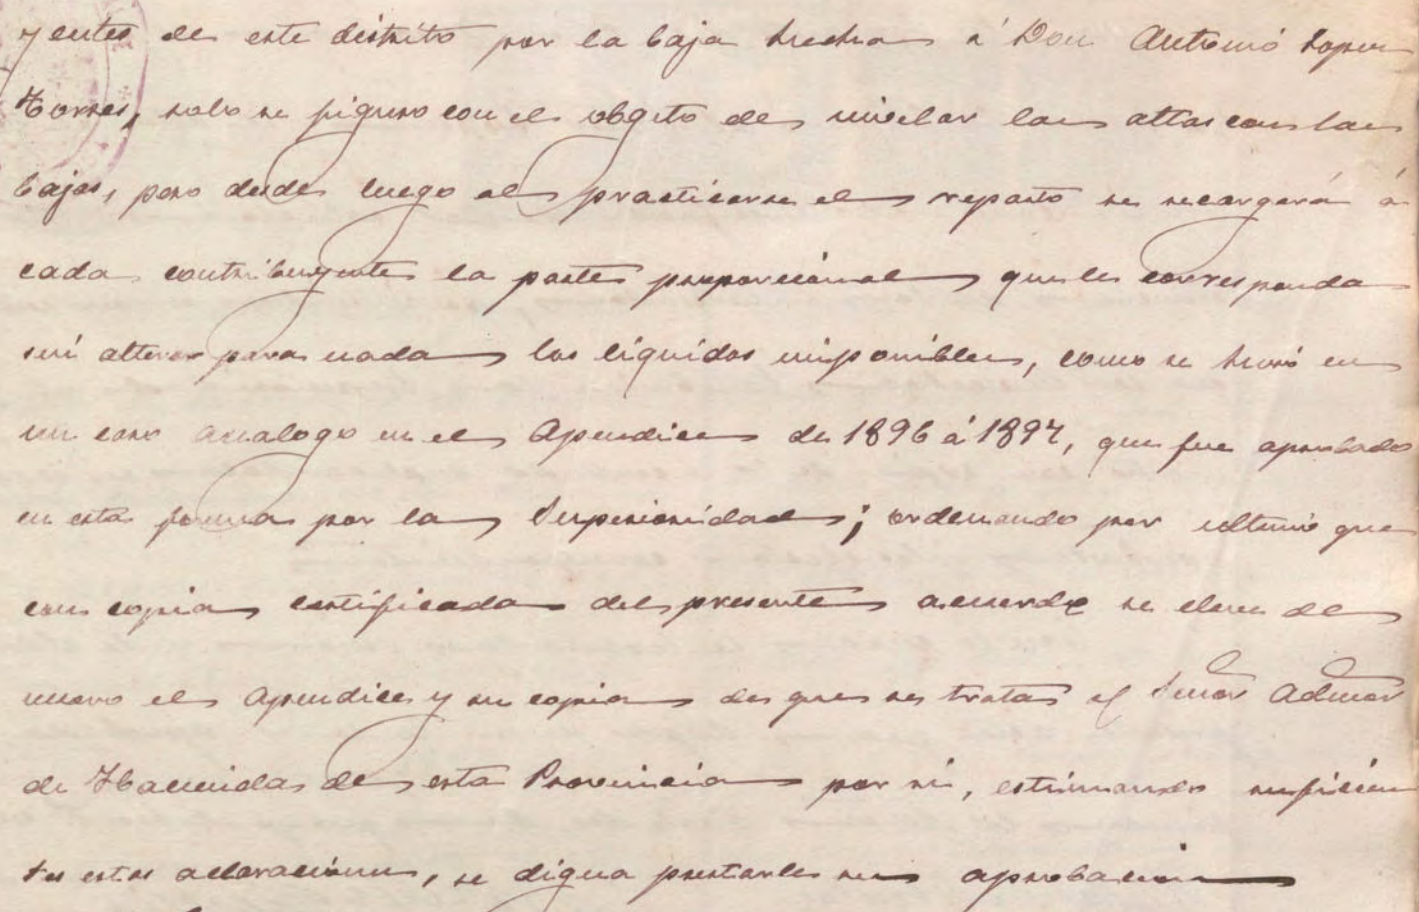 yentes de este distrito por la baja hecha á Don Antonio Lopez
Torres, solo se figuro con el obgeto de nivelar las altas con las
bajas, pero desde luego al practicarse el reparto se recargará á
cada contribuyente la parte proporcional que le corresponda
sin alterar para nada los liquidos imponibles, como se hizó en
un caso analogo en el Apendice de 1896 á 1897, que fue aprobado
en esta forma por la Superioridad; ordenando por ultimo que
con copia certificada del presente acuerdo se eleve de
nuevo el Apendice y su copia de que se trata al Señor Admor
de Hacienda de esta Provincia por si, estimando suficien
tes estas aclaraciones, se digna prestarle su aprobacion